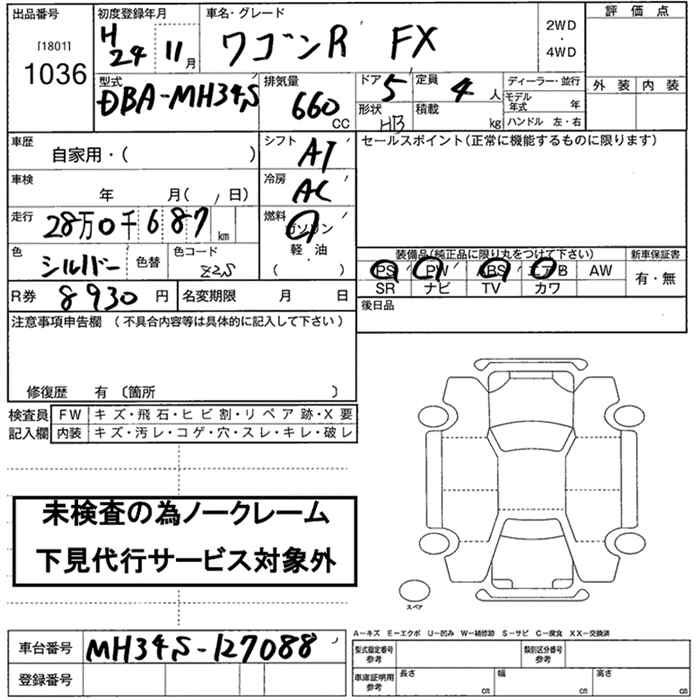 出品番号 初度登録年月 車名・グレード 評価点
[1801] H24 11月 ワゴンR FX 2WD・4WD
1036 外装 内装
型式 排気量 ドア 5 定員 4人 ディーラー・並行
DBA-MH34S 660 CC 形状 HB 積載 kg モデル年式 年
ハンドル 左・右
車歴 自家用・( ) シフト AT セールスポイント(正常に機能するものに限ります)
車検 年 月( 日) 冷房 AC
走行 28万0千687km 燃料 ガソリン
軽・油
( )
色 シルバー 色替 色コード Z2S 装備品(純正品に限り丸をつけて下さい) 新車保証書
PS PW ABS エアB AW 有・無
SR ナビ TV カワ
R券 8930円 名変期限 月 日 後日品
注意事項申告欄 (不具合内容等は具体的に記入して下さい)
修復歴 有 〔箇所 〕
検査員 FW キズ・飛石・ヒビ割・リペア跡・X要
記入欄 内装 キズ・汚レ・コゲ・穴・スレ・キレ・破レ
未検査の為ノークレーム
下見代行サービス対象外
スペア
A-キズ E-エクボ U-凹み W-補修跡 S-サビ C-腐食 XX-交換済
車台番号 MH34S-127088 型式指定番号 参考 類別区分番号 参考
登録番号 車庫証明用 参考 長さ cm 幅 cm 高さ cm